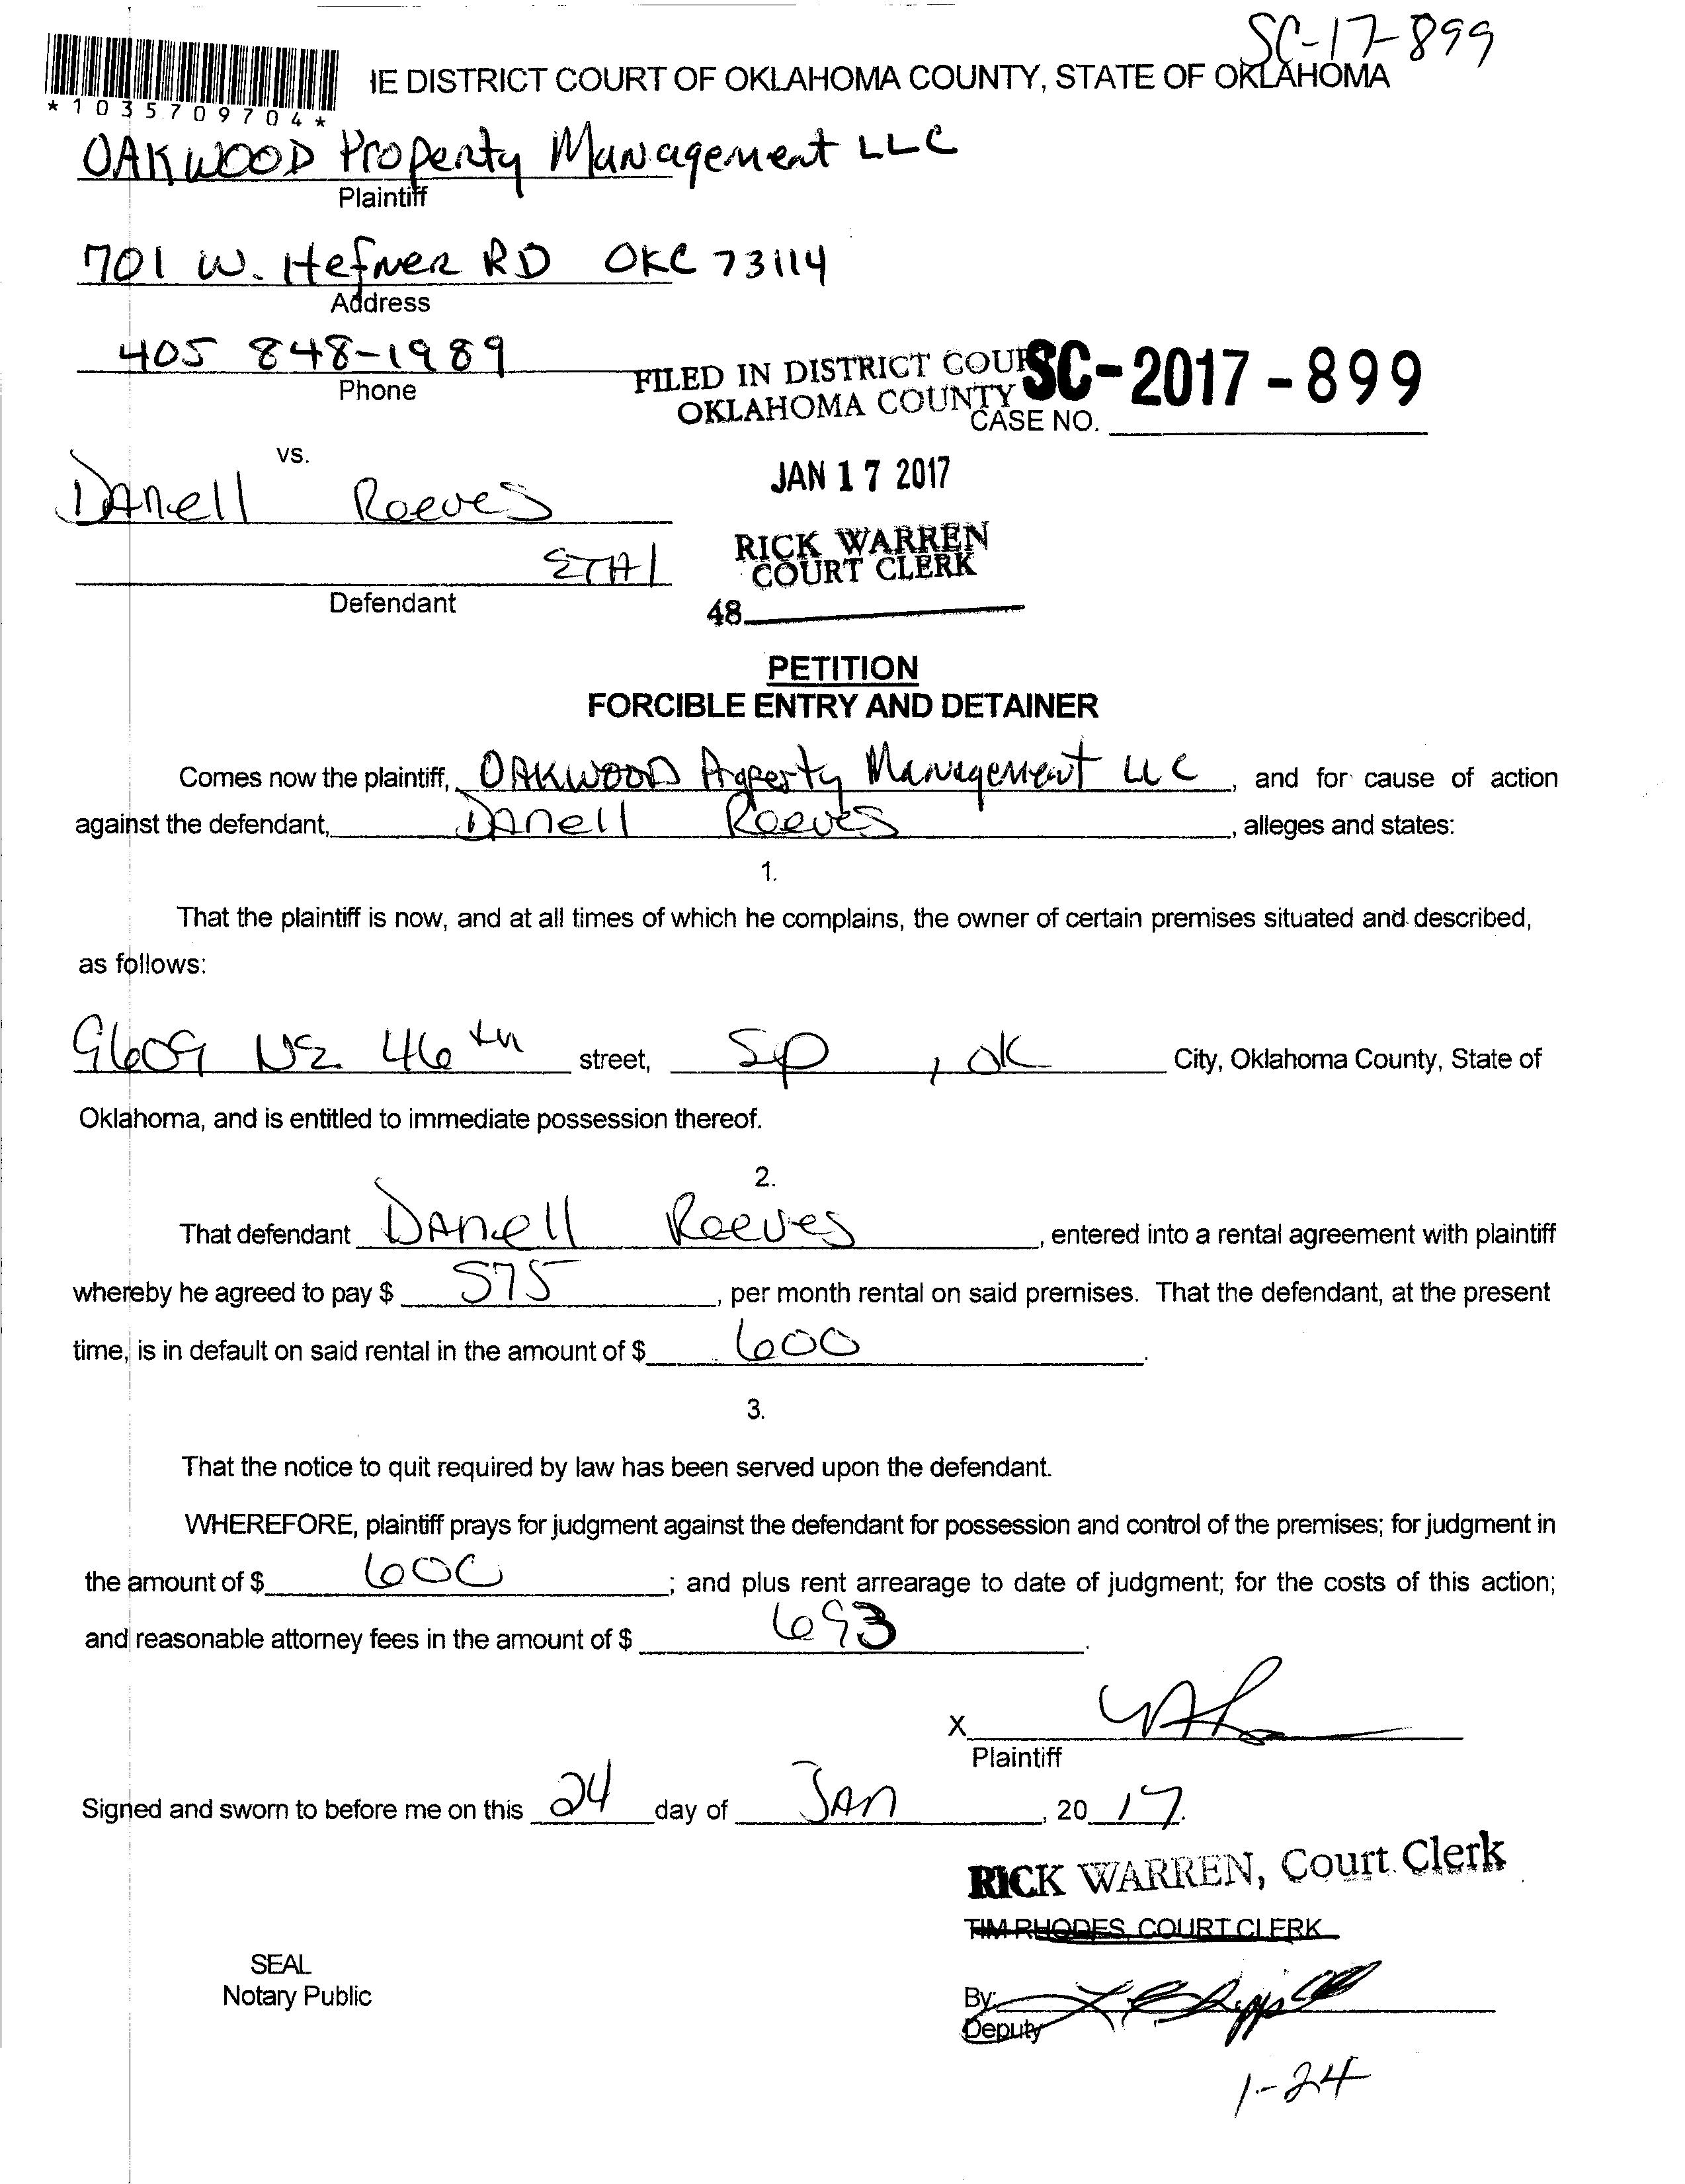 SC-17-899
IE DISTRICT COURT OF OKLAHOMA COUNTY, STATE OF OKLAHOMA
*1035709704*
OAKWOOD Property Management LLC
Plaintiff
701 W. Hefner RD OKC 73114
Address
405 848-1989
Phone
FILED IN DISTRICT COUR
OKLAHOMA COUNTY
SC-2017-899
CASE NO.
vs.
JAN 17 2017
DAnell Reeves
RICK WARREN
COURT CLERK
ETAl
Defendant
48
PETITION
FORCIBLE ENTRY AND DETAINER
Comes now the plaintiff, OAKWOOD Property Management LLC, and for cause of action
against the defendant, DAnell Reeves, alleges and states:
1.
That the plaintiff is now, and at all times of which he complains, the owner of certain premises situated and described,
as follows:
9609 NE 46th street, Sp, OK City, Oklahoma County, State of
Oklahoma, and is entitled to immediate possession thereof.
2.
That defendant DAnell Reeves, entered into a rental agreement with plaintiff
whereby he agreed to pay $ 575, per month rental on said premises. That the defendant, at the present
time, is in default on said rental in the amount of $ 600.
3.
That the notice to quit required by law has been served upon the defendant.
WHEREFORE, plaintiff prays for judgment against the defendant for possession and control of the premises; for judgment in
the amount of $ 600; and plus rent arrearage to date of judgment; for the costs of this action;
and reasonable attorney fees in the amount of $ 693.
X
Plaintiff
Signed and sworn to before me on this 24 day of JAn, 20 17.
RICK WARREN, Court Clerk
TIM RHODES, COURT CLERK
SEAL
Notary Public
By:
Deputy
1-24